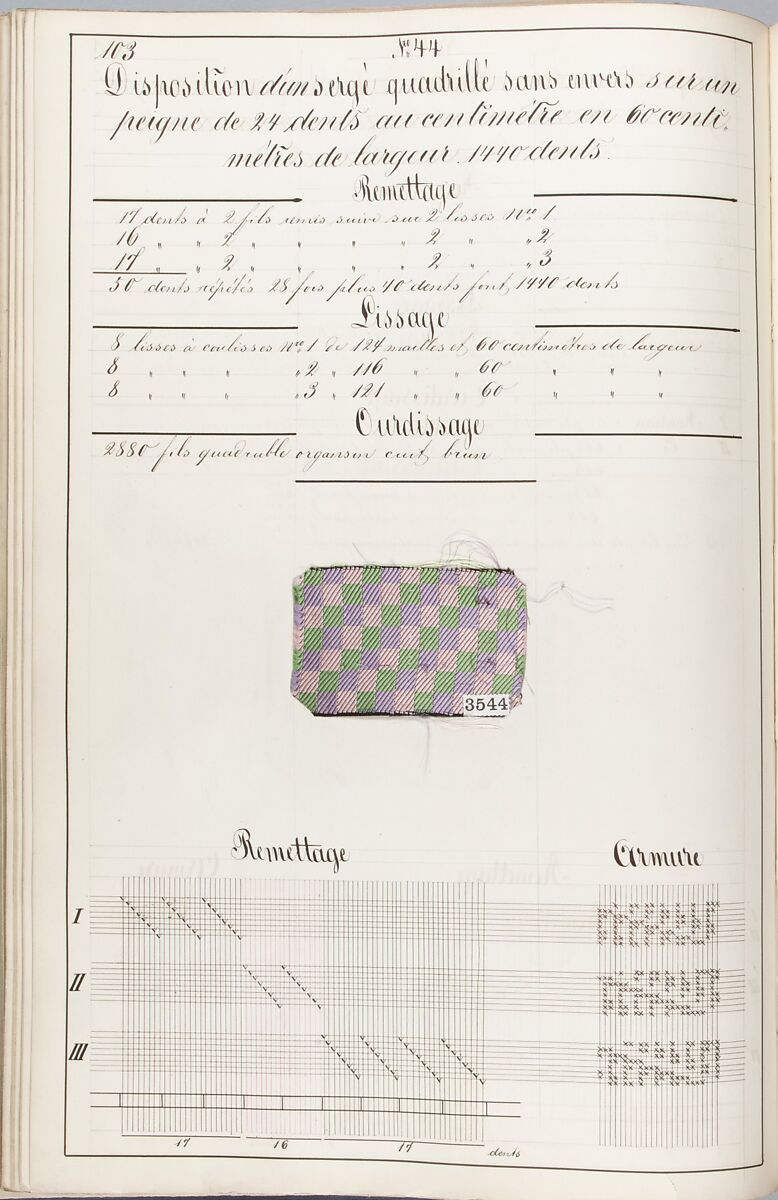 103
No. 44
Disposition d'un sergé quadrillé sans envers sur un
peigne de 24 dents au centimètre en 60 centi-
mètres de largeur. 1440 dents.
Remettage
17 dents à 2 fils remis suivi sur 2 lisses Nro 1
16 " " 2 " " " " 2 " " 2
17 " " 2 " " " " 2 " " 3
50 dents répétés 28 fois plus 40 dents font 1440 dents
Lissage
8 lisses à coulisses Nro 1 de 124 mailles et 60 centimètres de largeur
8 " " " " 2 " 116 " " 60 " " "
8 " " " " 3 " 121 " " 60 " " "
Ourdissage
2880 fils quadruble organsin cuit brun
3544
Remettage
Armure
I
II
III
17 16 17 dents